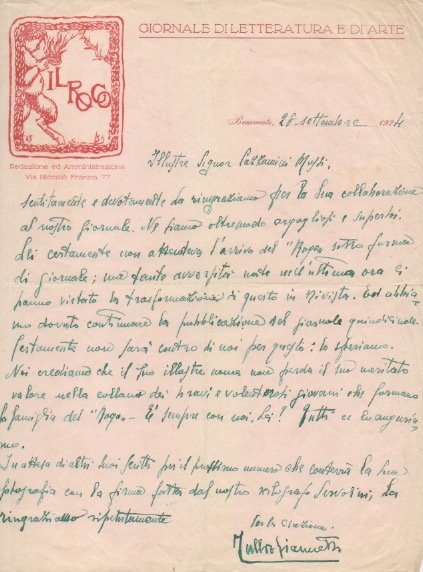 GIORNALE DI LETTERATURA E DI ARTE
IL ROGO
Redazione ed Amministrazione
Via Niccolò Franco, 77
Benevento, 28 settembre 1924
Illustre Signor
sentitamente e devotamente La ringraziamo per la Sua collaborazione
al nostro giornale. Ne siamo oltremodo orgogliosi e superbi.
Lei certamente non attendeva l'arrivo del "Rogo" sotto forma
di giornale; ma tante avversità nate nell'ultima ora ci
hanno vietato la trasformazione di questo in Rivista. Ed abbia-
mo dovuto continuare la pubblicazione del giornale quindicinale.
Certamente non sarà contro di noi per questo: lo speriamo.
Noi crediamo che il Suo illustre nome non perda il suo meritato
valore nella collana dei bravi e volenterosi giovani che formano
la famiglia del "Rogo" - È sempre con noi, Lei? Tutti ce lo auguria-
mo.
In attesa di altri Suoi scritti per il prossimo numero che conterrà la Sua
fotografia con la firma fatta dal nostro xilografo Servolini, La
ringraziamo ripetutamente